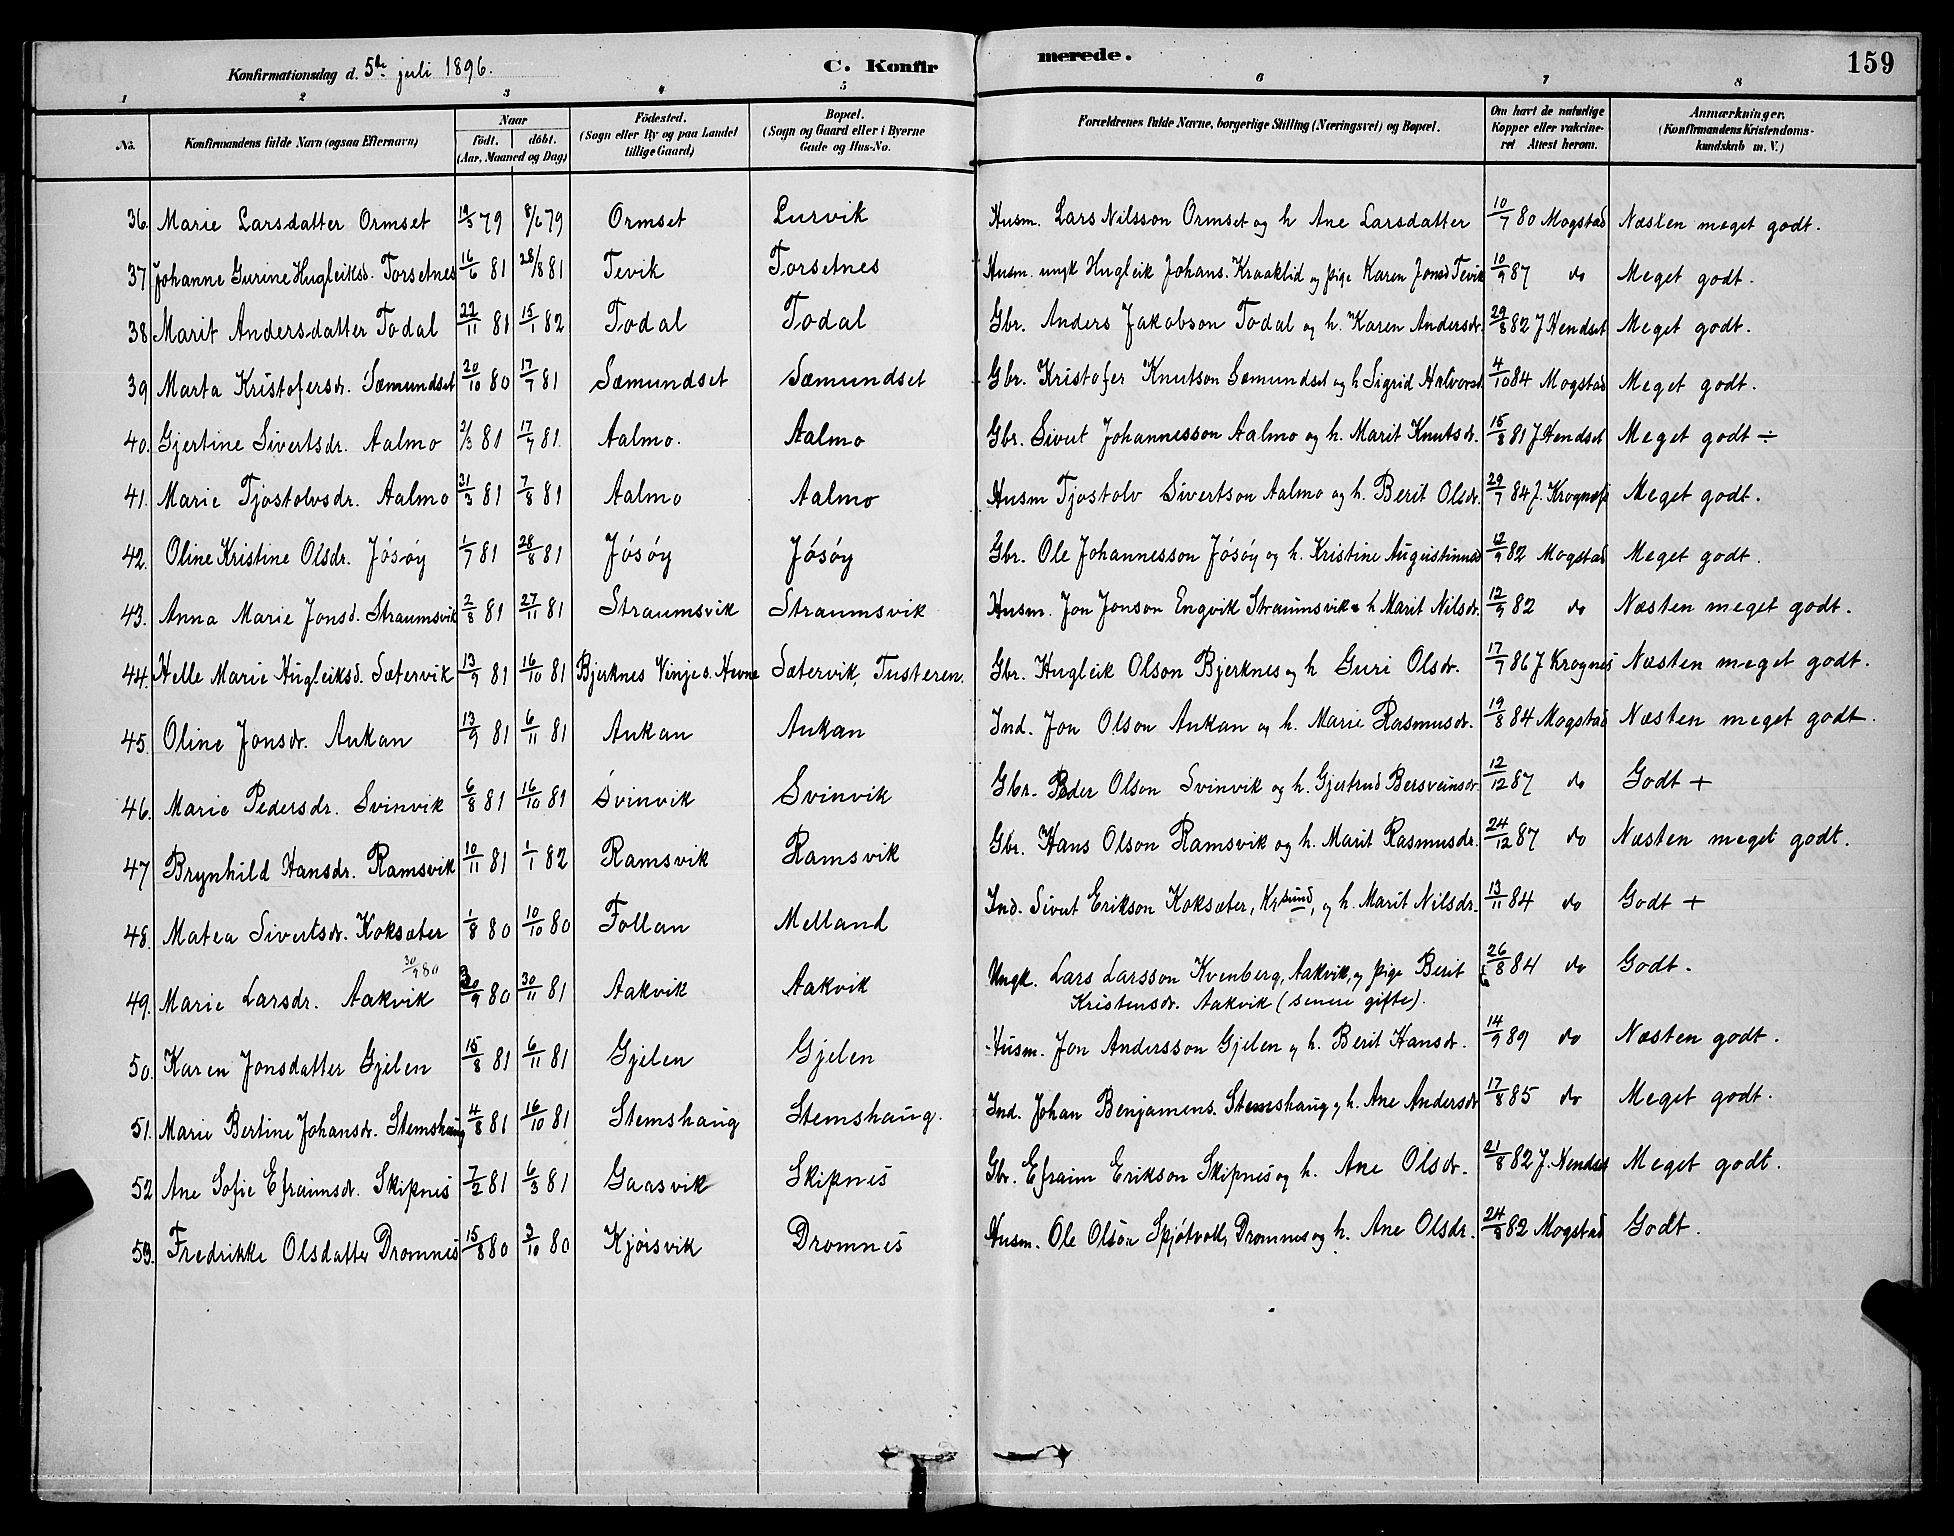 159
Konfirmationsdag d. 5te juli 1896. C. Konfirmerede.
1 2 3 4 5 6 7 8
No. Konfirmandens fulde Navn (ogsaa Efternavn) Naar født. døbt. (Aar, Maaned og Dag) Fødested. (Sogn eller By og paa Landet tillige Gaard) Bopæl. (Sogn og Gaard eller i Byerne Gade og Hus-No. Forældrenes fulde Navne, borgerlige Stilling (Næringsvei) og Bopæl. Om havt de naturlige Kopper eller vakcineret Attest herom. Anmærkninger. (Konfirmandens Kristendomskundskab m. V.)
36. Marie Larsdatter Ormset 19/3 79 8/6 79 Ormset Lurvik Husm. Lars Nilsson Ormset og h Ane Larsdatter 10/7 80 Mogstad Næsten meget godt.
37 Johanne Gurine Hugleiksd. Torsetnes 16/6 81 28/8 81 Tevik Torsetnes Husm. ungk Hugleik Johans. Kraaklid og pige Karen Jonsd Tevik 10/9 87 do Meget godt.
38 Marit Andersdatter Todal 22/11 81 15/1 82 Todal Todal Gbr. Anders Jakobson Todal og h. Karen Andersdr. 29/8 82 J Hendset Meget godt.
39 Marta Kristofersdr. Sæmundset 20/10 80 17/7 81 Sæmundset Sæmundset Gbr. Kristofer Knutson Sæmundset og h Sigrid Halvorsd. 4/10 84 Mogstad Meget godt.
40. Gjertine Sivertsdr. Aalmo 2/3 81 17/7 81. Aalmo. Aalmo Gbr. Sivert Johannesson Aalmo og h. Marit Knutsdr. 15/8 81 J Hendset Meget godt ÷
41. Marie Tjostolvsdr. Aalmo 31/3 81 7/8 81 Aalmo Aalmo Husm Tjostolv Sivertson Aalmo og h. Berit Olsdr. 29/7 84 J. Krognes Meget godt.
42. Oline Kristine Olsdr. Jósóy 1/7 81 28/8 81 Jósóy Jósóy Gbr. Ole Johannesson Jósóy og h. Kristine Augustinusd 12/9 82 Mogstad Meget godt.
43. Anna Marie Jonsd. Straumsvik 2/8 81 27/11 81 Straumsvik Straumsvik Husm. Jon Jonson Engvik Straumsvik h Marit Nilsdr. 12/9 82 do Næsten meget godt.
44. Helle Marie Hugleiksd. Sætervik 13/9 81 16/10 81 Bjerknes Vinje s. Hevne Sætervik, Tusteren. Gbr. Hugleik Olson Bjerknes og h Guri Olsdr. 17/7 86 J Krognes Næsten meget godt.
45. Oline Jonsdr. Aukan 13/9 81 6/11 81 Aukan Aukan Ind. Jon Olson Aukan og h. Marie Rasmusdr. 19/8 84 Mogstad Næsten meget godt.
46. Marie Pedersdr. Svinvik 6/8 81 16/10 81 Svinvik Svinvik Gbr. Peder Olson Svinvik og h. Gjertrud Bersveinsdr. 12/12 87 do Godt +
47 Brynhild Hansdr. Ramsvik 10/11 81 1/1 82 Ramsvik Ramsvik Gbr. Hans Olson Ramsvik og h. Marit Rasmusdr. 24/12 87 do Næsten meget godt.
48. Matea Sivertsdr. Koksæter 1/8 80 10/10 80 Follan Melland Ind. Sivert Erikson Koksæter, Krsund, og h. Marit Nilsdr. 13/11 84 do Godt +
30/9 80
49. Marie Larsdr. Aakvik 30/9 80 30/11 81 Aakvik Aakvik Ungk. Lars Larsson Kvenberg, Aakvik, og pige Berit 26/8 84 do Godt.
Kristensdr. Aakvik (senere gifte).
50. Karen Jonsdatter Gjelen 15/8 81 6/11 81 Gjelen Gjelen Husm. Jon Andersson Gjelen og h. Berit Hansdr. 14/9 89 do Næsten godt.
51. Marie Bertine Johansdr. Stemshaug 4/8 81 16/10 81 Stemshaug Stemshaug. Ind. Johan Benjamens. Stemshaug og h. Ane Andersdr 17/8 85 do Meget godt.
52 Ane Sofie Efraimsdr. Skipnes 7/2 81 6/3 81 Gaasvik Skipnes Gbr. Efraim Erikson Skipnes og h. Ane Olsdr. 21/8 82 J. Hendset Meget godt.
53. Fredrikke Olsdatter Dromnes 15/8 80 3/10 80 Kjórsvik Dromnes Husm. Ole Olson Spjótvoll, Dromnes og h. Ane Olsdr. 24/8 82 Mogstad Godt.